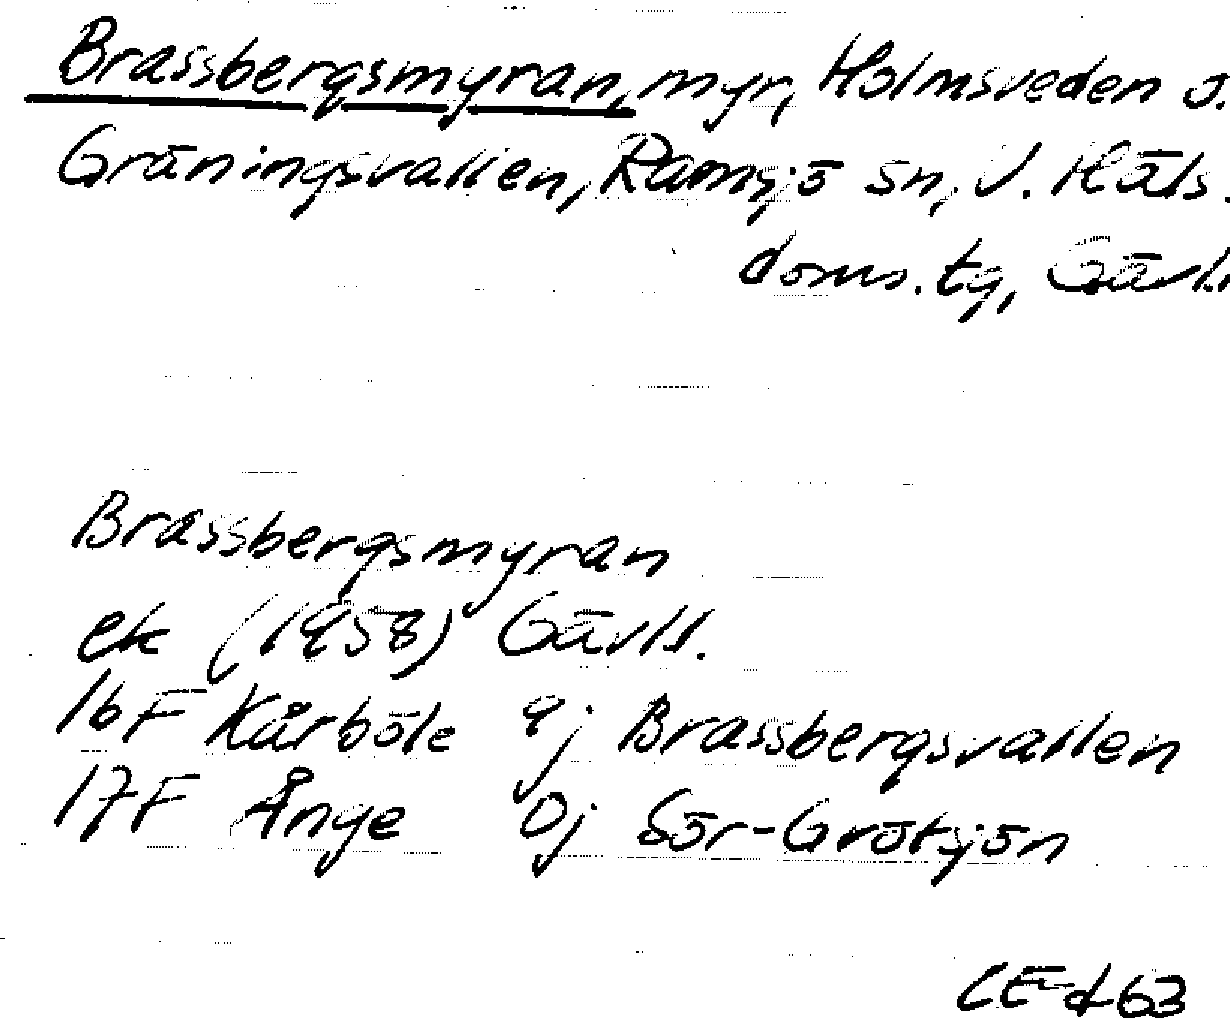 Brassbergsmyran, myr, Holmsveden o.
Gräningsvallen, Ramsjö sn, V. Häls.
doms. tg, Gävl.
Brassbergsmyran
ek (1958) Gävll.
16F Kårböle 9j Brassbergsvallen
17F Ånge 0j Sör-Grötsjön
CE-d63